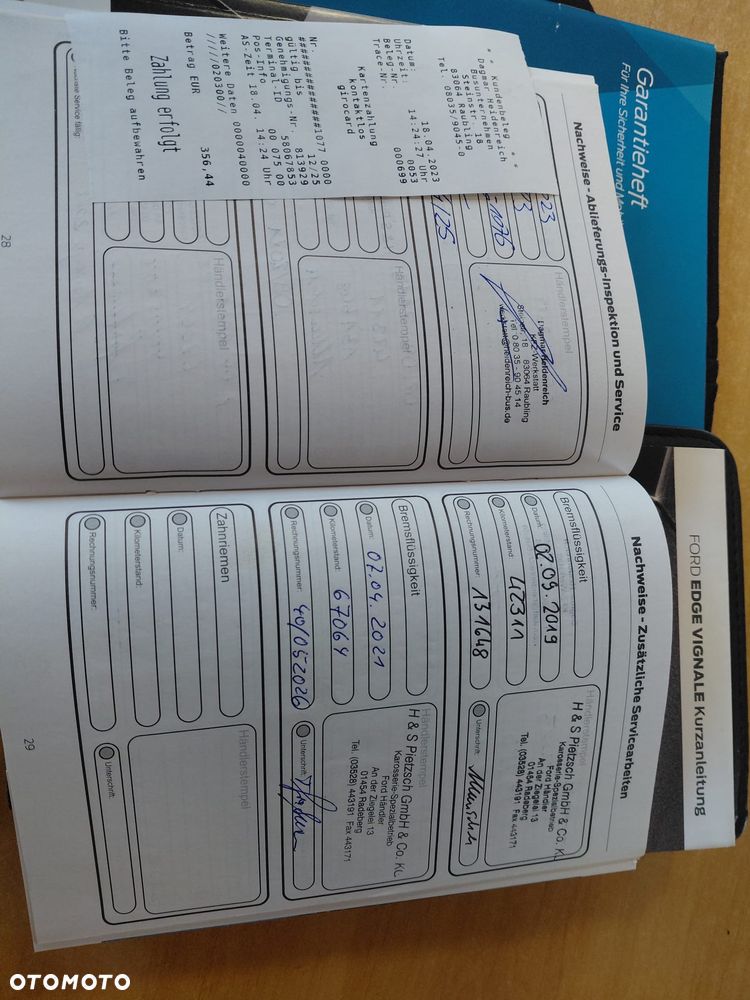 Garantieheft
Für Ihre Sicherheit und
FORD EDGE VIGNALE Kurzanleitung
Nachweise - Ablieferungs-Inspektion und Service
* * Kundenbeleg * *
Dagmar Heidenreich
Busunternehmen.
Steinstr. 18
83064 Raubling
Tel. 08035/9045-0
Datum: 18.04.2023
Uhrzeit: 14:24:27 Uhr
Beleg-Nr. 0053
Trace-Nr. 000699
Kartenzahlung
kontaktlos
girocard
Nr.
################1077 0000
gültig bis 12/25
Genehmigungs-Nr. 813929
Terminal-ID 58067853
Pos-Info 00 075 00
AS-Zeit 18.04. 14:24 Uhr
Weitere Daten 0000040000
/////020300//
Betrag EUR 356,44
Zahlung erfolgt
Bitte Beleg aufbewahren
Händlerstempel
Dagmar Heidenreich
Kfz-Werkstatt
Steinstr. 18 83064 Raubling
Tel. 0 80 35 - 90 45 14
Händlerstempel
Händlerstempel
28
Nachweise - Zusätzliche Servicearbeiten
Bremsflüssigkeit
Datum: 02.09.2019
Kilometerstand: 42311
Rechnungsnummer: 131648
Händlerstempel
H & S Pietzsch GmbH & Co. KG
Karosserie-Spezialbetrieb
Ford Händler
An der Ziegelei 13
01454 Radeberg
Tel. (03528) 443191 Fax 443171
Unterschrift:
Bremsflüssigkeit
Datum: 07.04.2021
Kilometerstand: 67064
Rechnungsnummer: 40/052026
Händlerstempel
H & S Pietzsch GmbH & Co. KG
Karosserie-Spezialbetrieb
Ford Händler
An der Ziegelei 13
01454 Radeberg
Tel. (03528) 443191 Fax 443171
Unterschrift:
Zahnriemen
Datum:
Kilometerstand:
Rechnungsnummer:
Händlerstempel
Unterschrift:
29
OTOMOTO